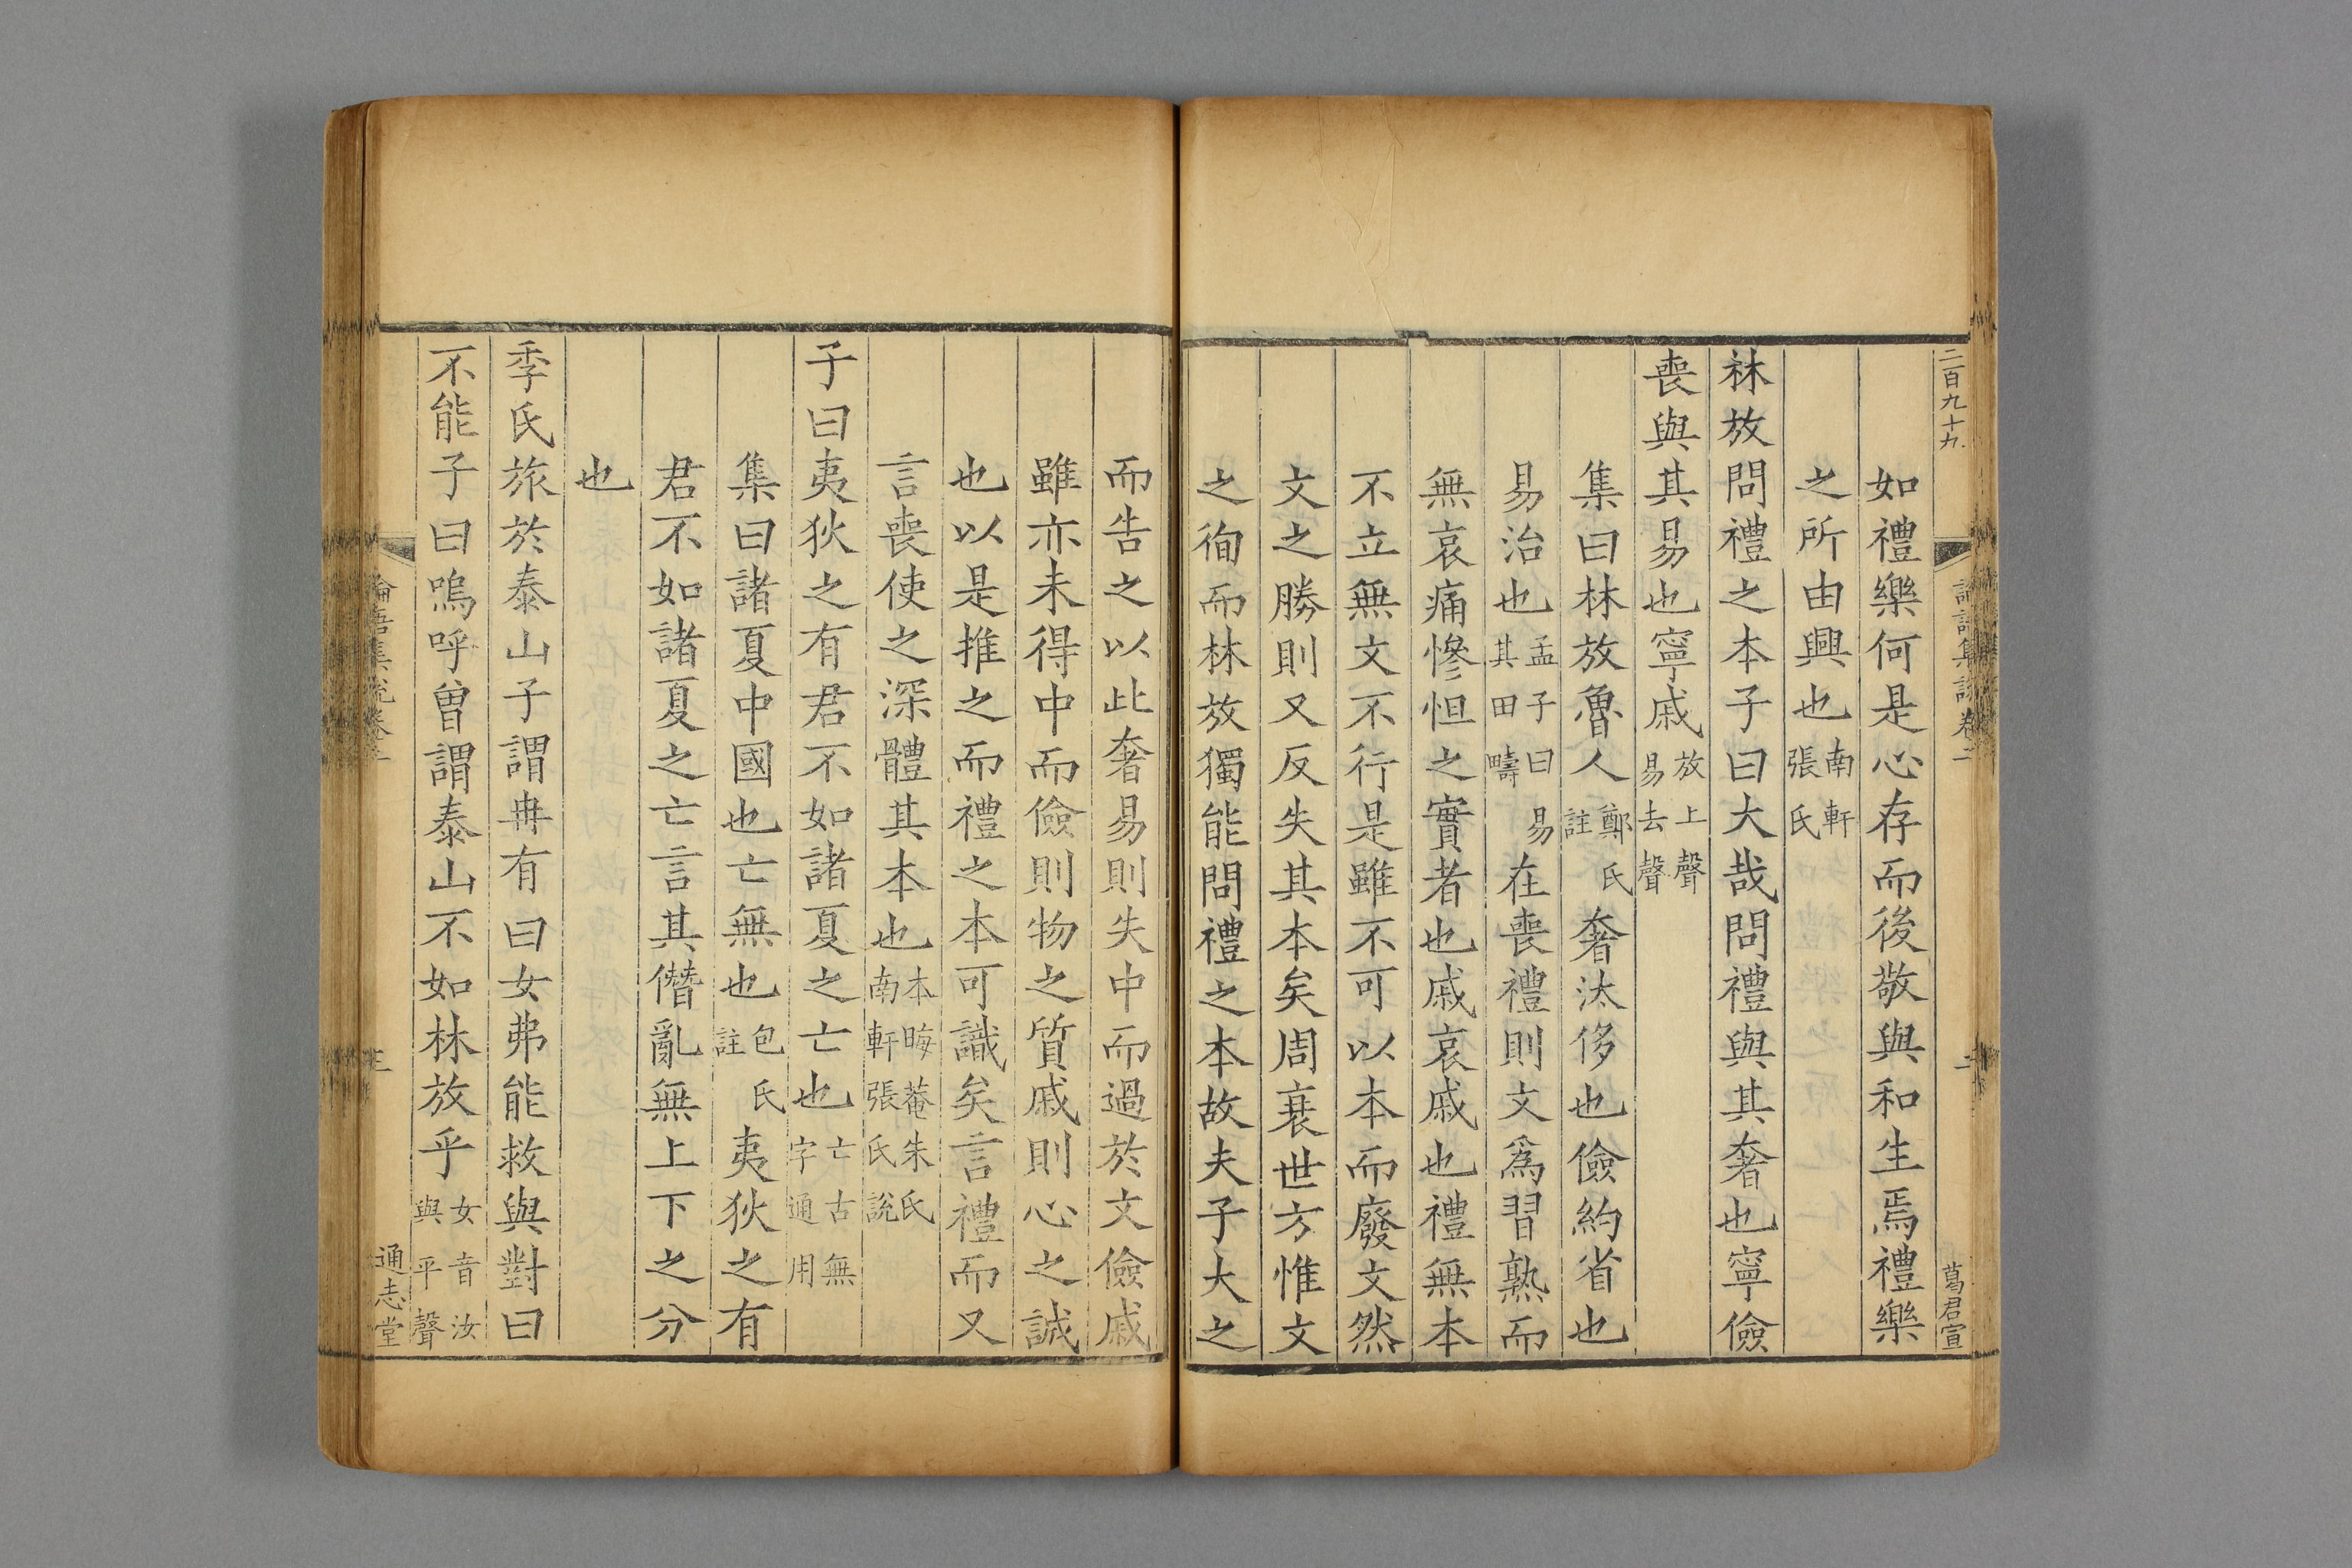 二百九十九
葛君宣
如禮樂何是心存而後敬與和生焉禮樂
之所由興也南軒張氏
林放問禮之本子曰大哉問禮與其奢也寧儉
喪與其易也寧戚放上聲易去聲
集曰林放魯人鄭氏註奢汰侈也儉約省也
易治也孟子曰易其田疇在喪禮則文爲習熟而
無哀痛慘怛之實者也戚哀戚也禮無本
不立無文不行是雖不可以本而廢文然
文之勝則又反失其本矣周衰世方惟文
之徇而林放獨能問禮之本故夫子大之
而告之以此奢易則失中而過於文儉戚
雖亦未得中而儉則物之質戚則心之誠
也以是推之而禮之本可識矣言禮而又
言喪使之深體其本也本晦菴朱氏南軒張氏說
子曰夷狄之有君不如諸夏之亡也亡古無字通用
集曰諸夏中國也亡無也包氏註夷狄之有
君不如諸夏之亡言其僭亂無上下之分
也
季氏旅於泰山子謂冉有曰女弗能救與對曰
不能子曰嗚呼曾謂泰山不如林放乎女音汝與平聲
論語集說卷二
通志堂